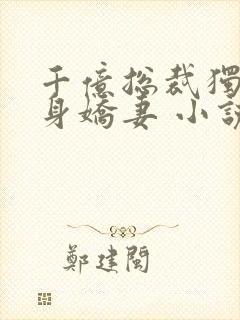 千億總裁獨
身嬌妻 小說
鄭建閩